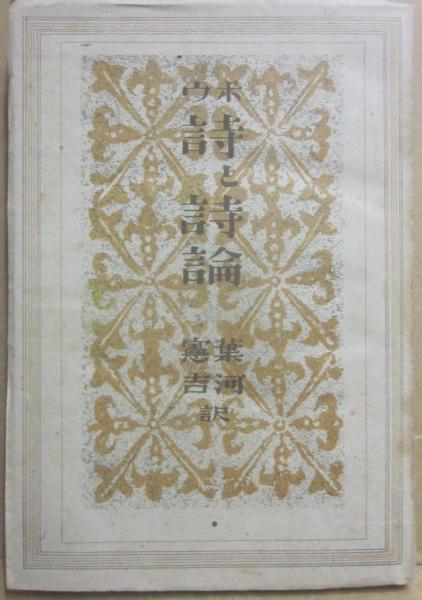 ポウ
詩と詩論
葉河
憲吉
訳